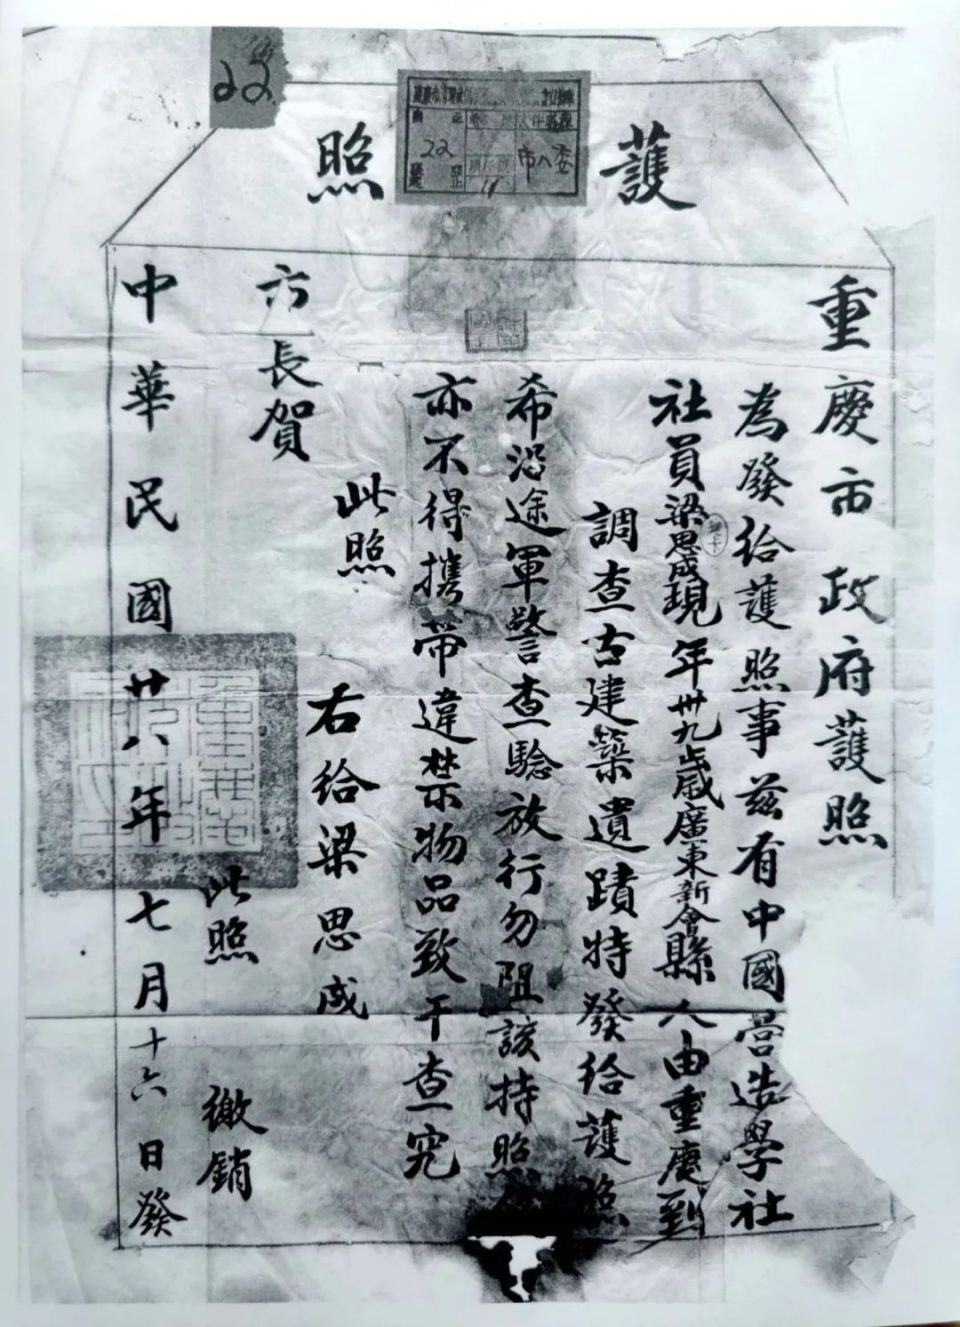 護照
重慶市政府護照
為發給護照事茲有中國營造學社
社員梁思成現年卅九歲廣東新會縣人由重慶到
調查古建築遺蹟特發給護照
希沿途軍警查驗放行勿阻該持照
亦不得攜帶違禁物品致干查究
此照
右給梁思成
市長賀
此照
繳銷
中華民國廿八年七月十六日發
22
22
市人委
11